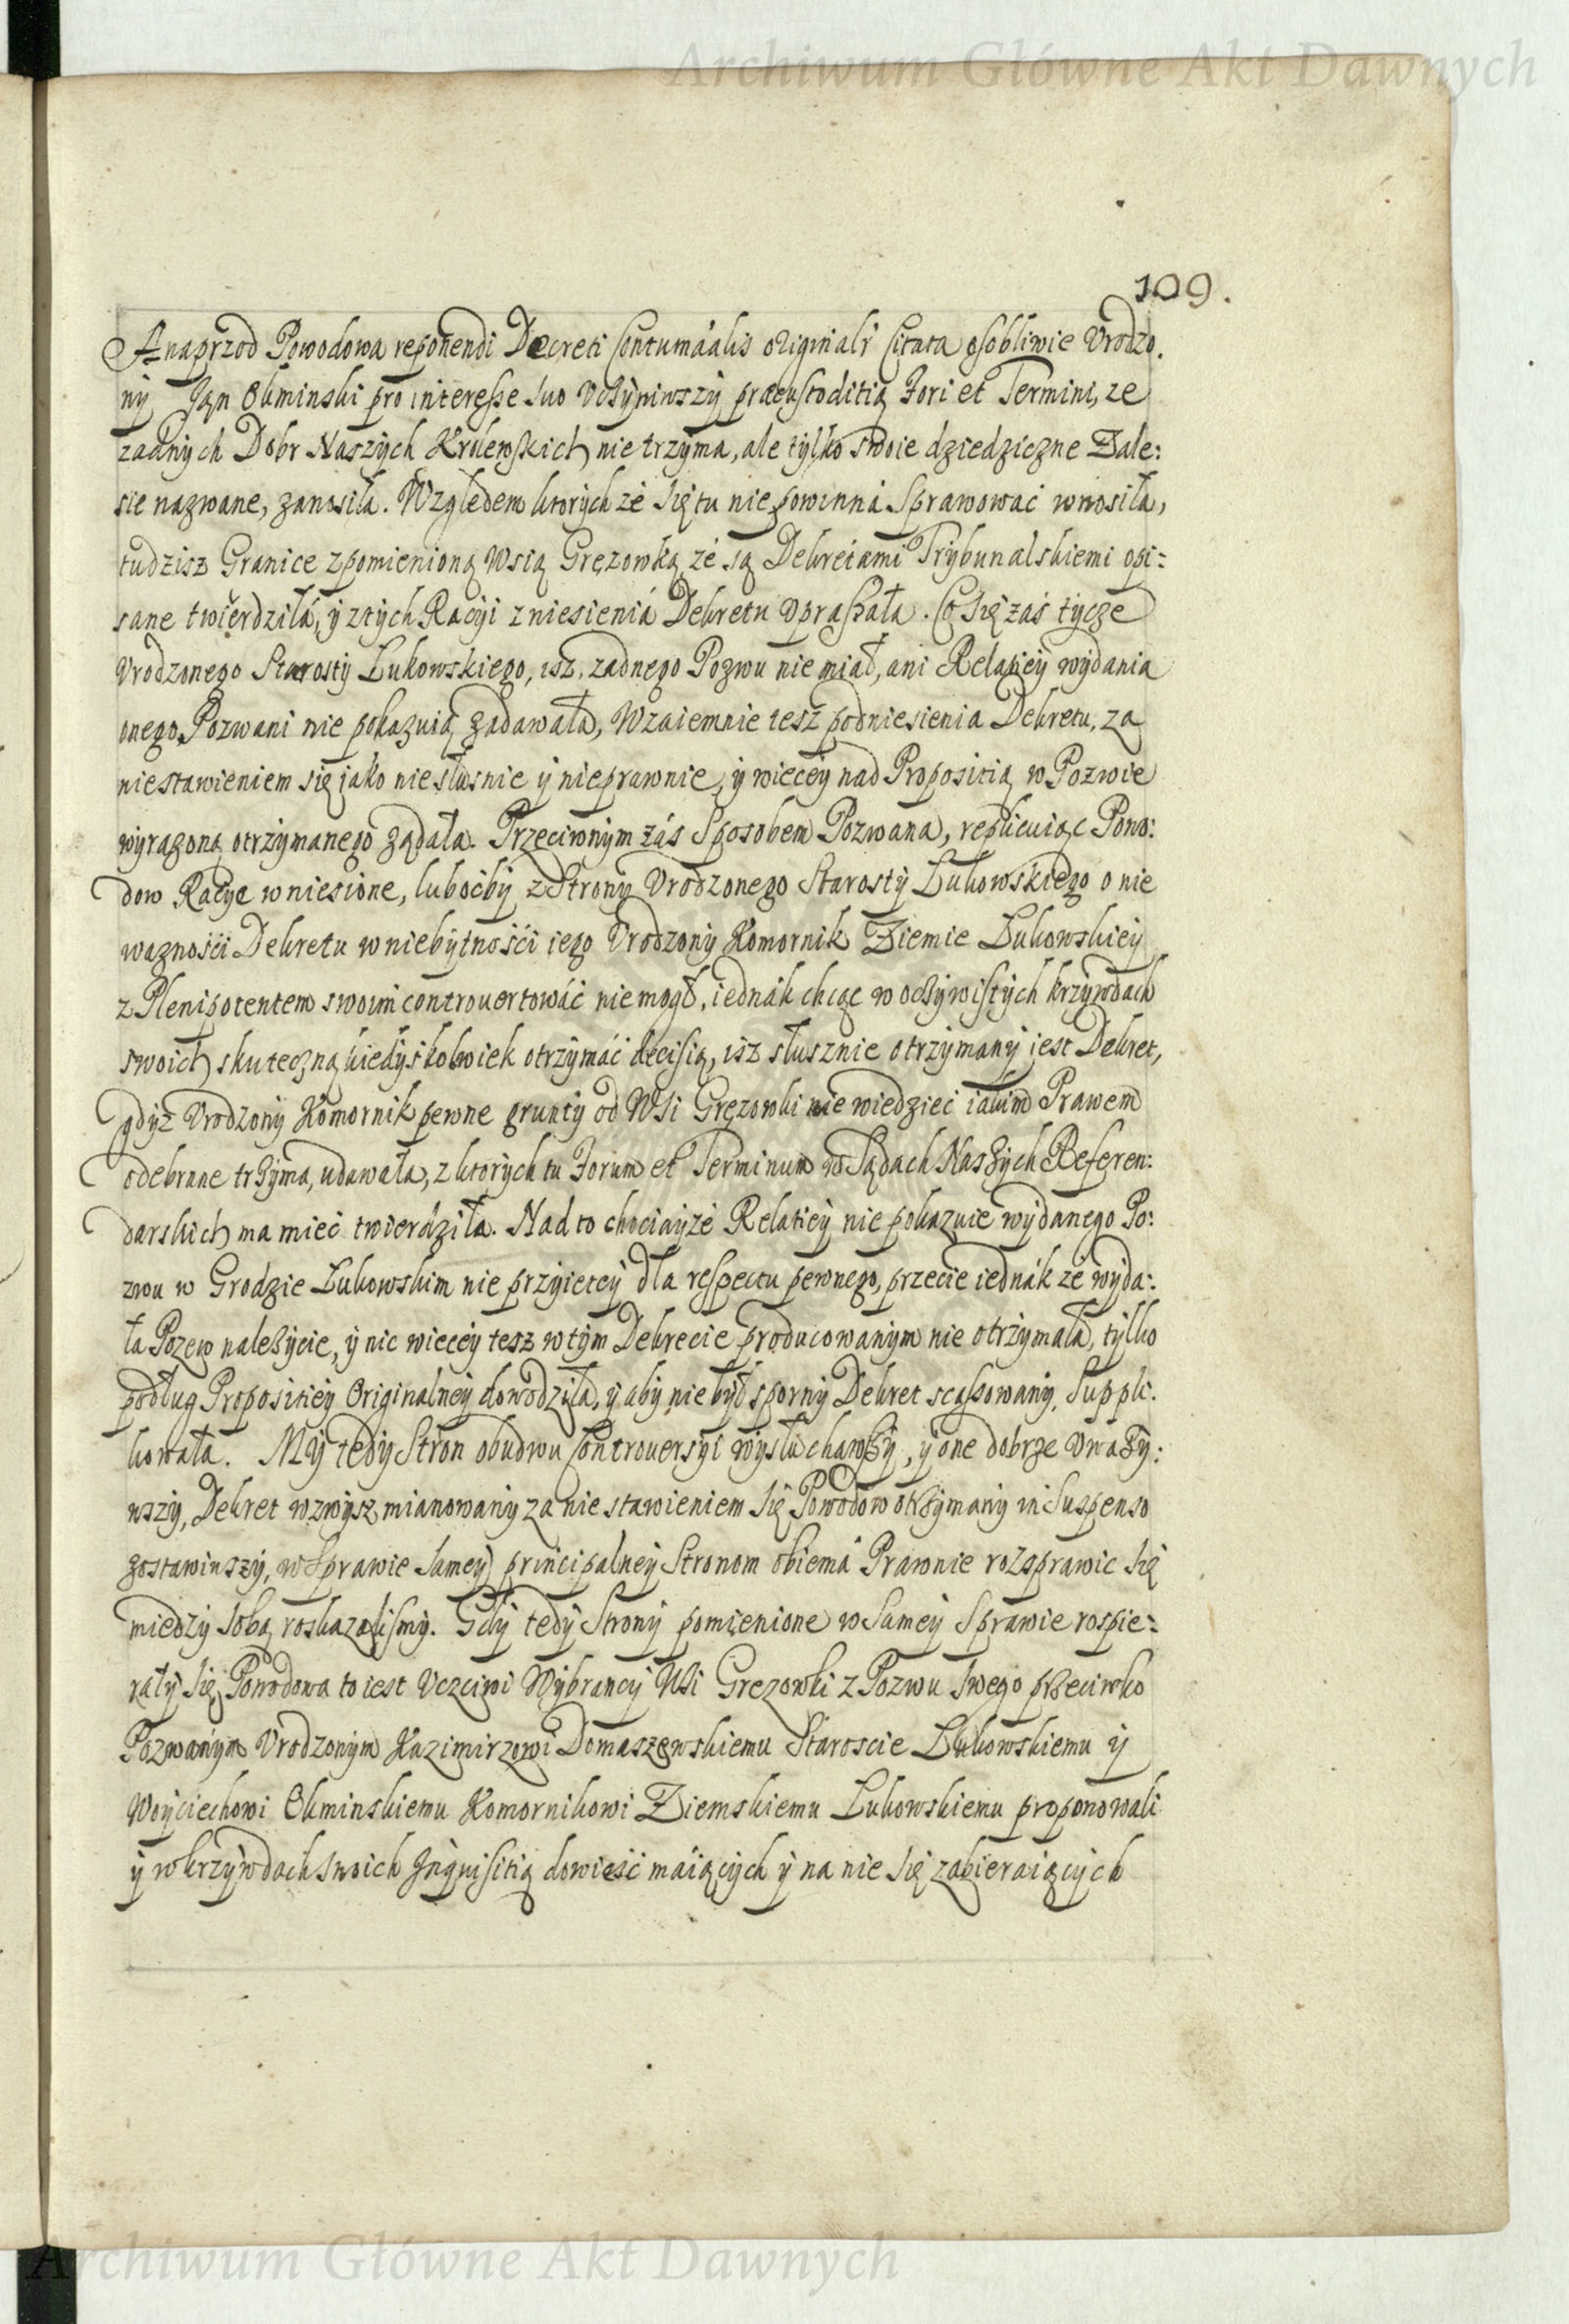 Archiwum Główne Akt Dawnych
109.
A naprzod Powodowa reponendi Decreti Contumacialis originali Citata osobliwie Vrodzo.
ny Jan Okminski pro interesse suo vczyniwszy praecustoditią Fori et Termini, ze
zadnych Dobr Naszych Krolewskich nie trzyma, ale tylko swoie dziedziczne Zale:
sie nazwane, zanosiła. Względem ktorych że się tu nie powinna Sprawować wnosiła,
tudzisz Granice z pomienioną Wsią Gręzowką że są Dekretami Trybunalskiemi opi:
sane twierdziła, y z tych Racyi zniesienia Dekretu vpraszała. Co się zaś tycze
Vrodzonego Starosty Łukowskiego, isz żadnego Pozwu nie miał, ani Relatiey wydania
onego Pozwani nie pokazuią zadawała, Wzaiemnie tesz podniesienia Dekretu, za
niestawieniem się jako niesłusnie y nieprawnie, y wiecey nad Propositią w Pozwie
wyrazoną otrzymanego ządała. Przeciwnym zás Sposobem Pozwana, replicuiąc Powo:
dow Racye wniesione, luboćby z Strony Vrodzonego Starosty Łukowskiego o nie
wazności Dekretu w niebytności iego Vrodzony Komornik Ziemie Łukowskiey
z Plenipotentem swoim controvertowáć nie mogł, iednák chcąc w oczywistych krzywdach
swoich skuteczną kiedyśkolwiek otrzymáć decisią, isz słusznie otrzymany jest Dekret,
gdyż Vrodzony Komornik pewne grunty od Wsi Gręzowki nie wiedzieć iakim Prawem
odebrane trzyma, udawała, z ktorych tu Forum et Terminum w Sądach Naszych Referen:
darskich ma mieć twierdziła. Nad to chociayże Relatiey nie pokazuie wydanego Po:
zwu w Grodzie Łukowskim nie przyietey dla respectu pewnego, przecie iednák ze wyda:
ła Pozew nalezycie, y nic wiecey tesz w tym Dekrecie producowanym nie otrzymała, tylko
podług Propositiey Originalney dowodziła, y aby nie był sporny Dekret scassowany, Suppli:
kowała. My tedy Stron obudwu Controversyi wysłuchawszy, y one dobrze vwazy:
wszy, Dekret wzwysz mianowany za niestawieniem się Powodow otrzymany in Suspenso
zostawiwszy, w Sprawie samey principalney Stronom obiema Prawnie rozsprawic się
miedzy sobą roskazalismy. Gdy tedy Strony pomienione w Samey Sprawie rospie:
rały się Powodowa to iest Vczciwi Wybrancy Wsi Grezowki z Pozwu swego przeciwko
Pozwanym Vrodzonym Kazimirzowi Domaszewskiemu Staroscie Łukowskiemu y
Woyciechowi Okminskiemu Komornikowi Ziemskiemu Łukowskiemu proponowali
y w krzywdach swoich Inquisitią dowieść maiących y na nie się zabieraiących
Archiwum Główne Akt Dawnych